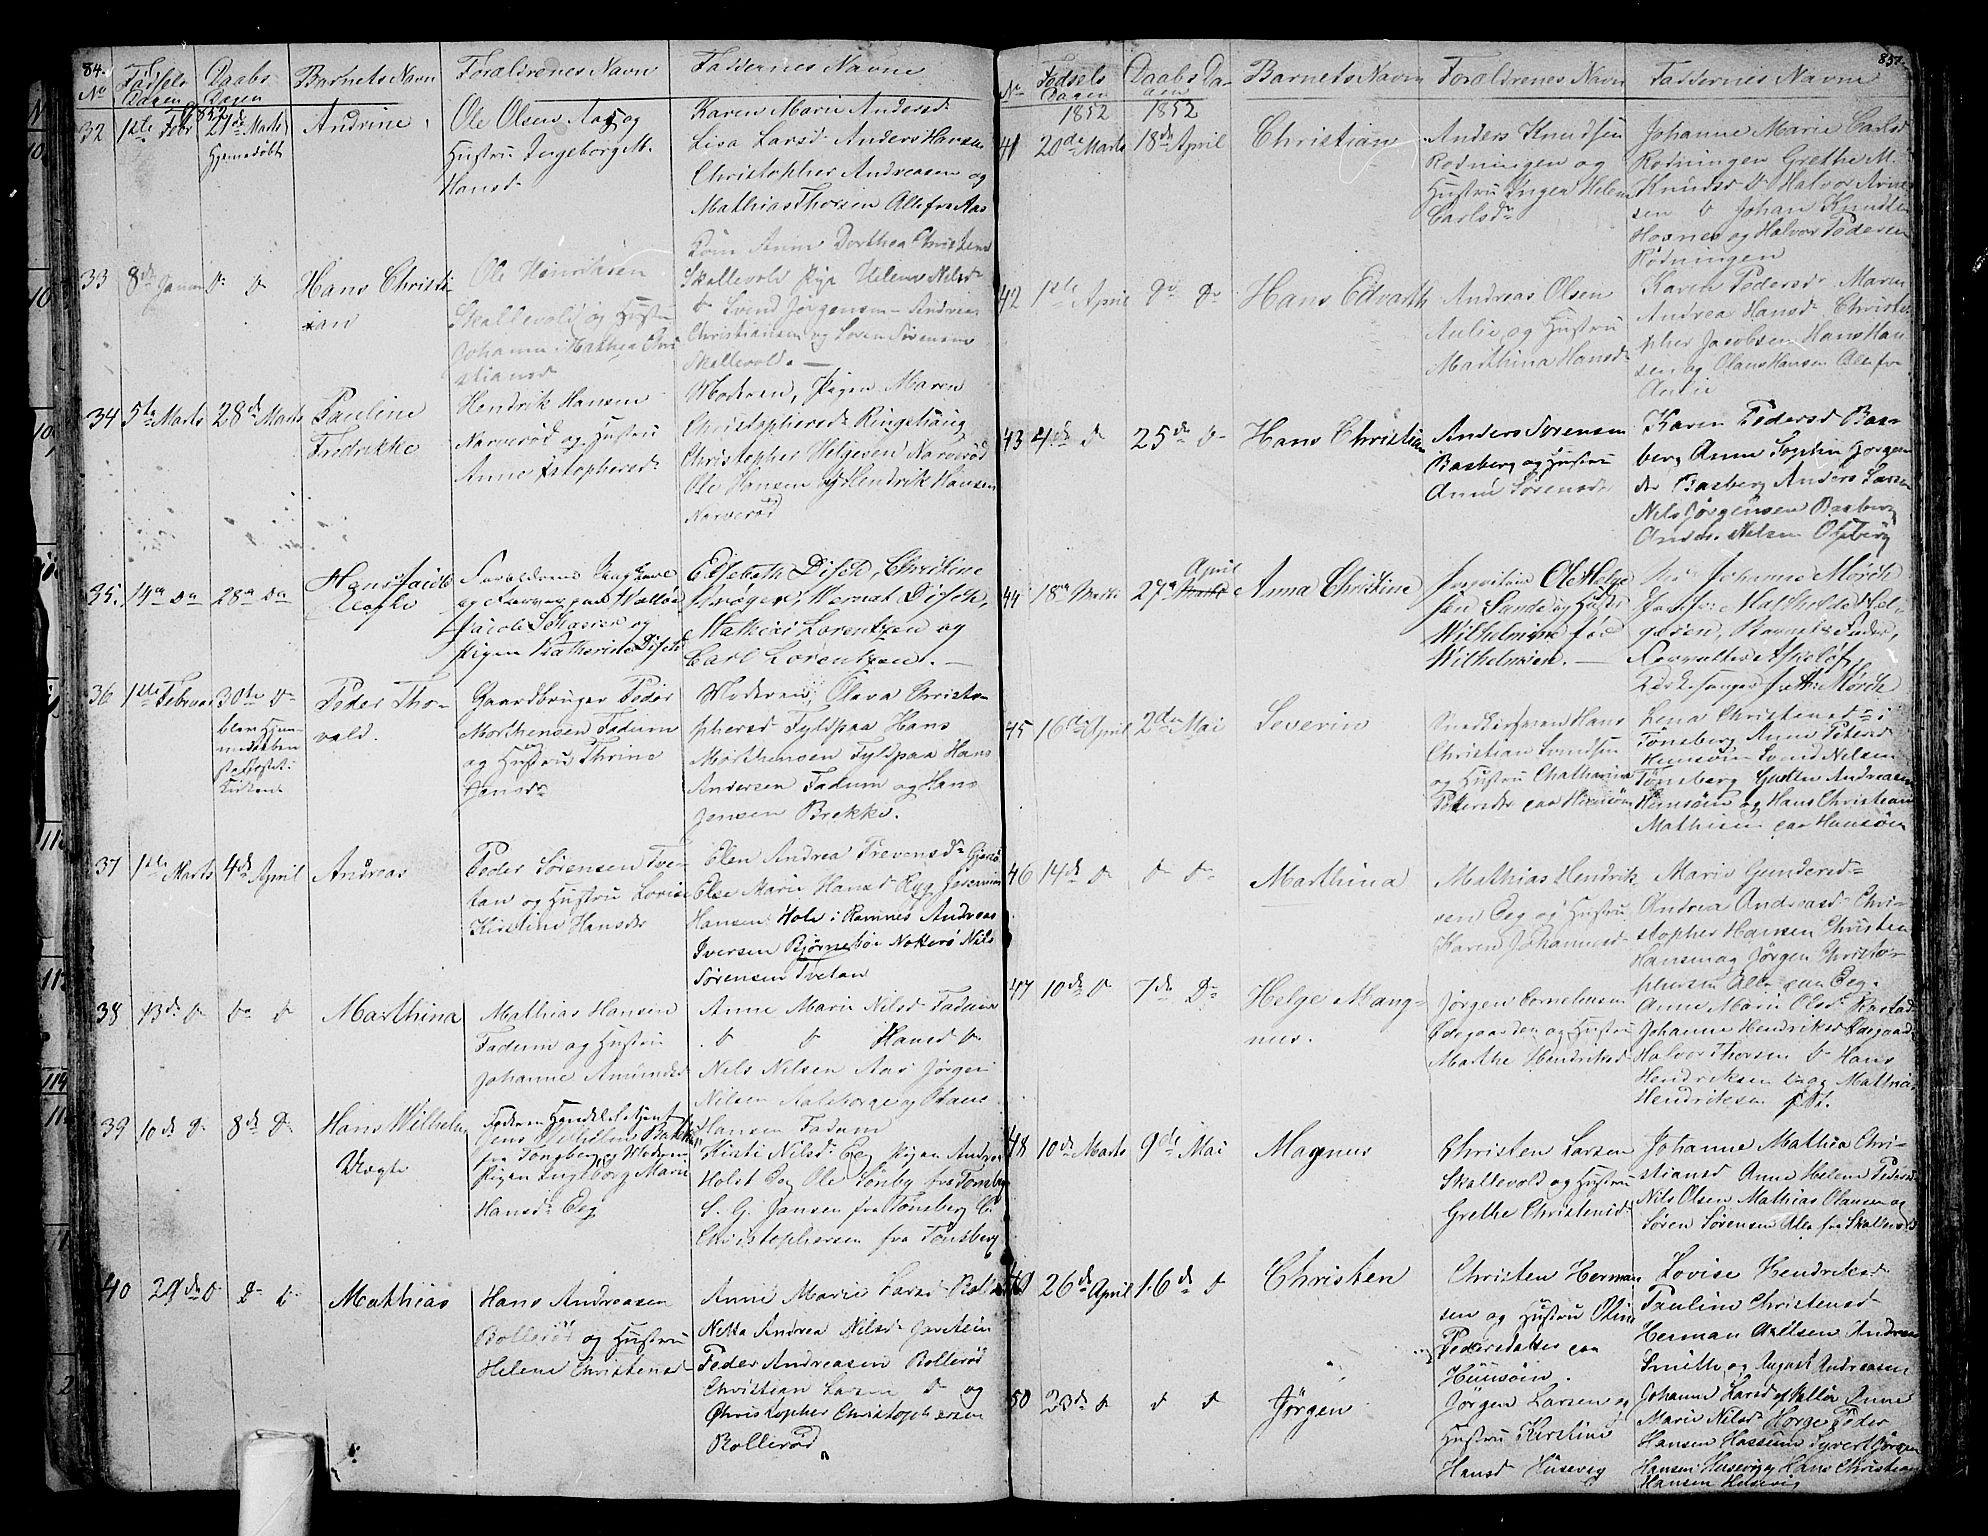 84.
No
Fødsels Dagen
Daabs Dagen
Barnets Navn
Forældrenes Navn
Faddernes Navne
1852
32
1ste Febr
21de Marts
Hjemedøbt
Andrine
Ole Olsen Aas og
Hustru Ingeborg M.
Hansd.
Karen Marie Andersd.
Lisa Larsd. Anders Hansen
Christopher Andreasen og
Mathias Thorsen Alle fra Aas
33
8de Januar
Do Do
Hans Christi-
ian
Ole Henriksen
Skallevold og Hustru
Johanne Mathea Chri
stiansd
Anne Dorthea Christens
Skallevold Pige Helene Nilsd
Do Svend Jørgensen Andreas
Christiansen og Soren Sørensen
Skallevold. —
34
5te Marts
28de Marts
Pauline
Fredrikke
Hendrik Hansen
Narverød og Hustru
Anne Xstophersd.
Moderen, Pigen Maren
Christophersd. Ringshaug
Christopher Helgesen Narverød
Ole Hansen og Hendrik Hansen
Narverød
35.
14de Do
28de Do
Hans Jacob
Forældrene
Jacob og
Pigen Katherine Disch
Elsebeth Disch, Christine
Krøger, Wernat Disch,
Mathias Lorentzen og
Carl Lorentzen. —
36
1ste Februar
30te Do
blev Hjem
medøbt
Kirken
Peder Tho-
vald.
Gaardbruger Peder
Morthensen Fadum
og Hustru Thrine
Jensd
Moderen, Olava Christo-
phersd Fyldpaa Hans
Morthensen Fyldpaa Hans
Andersen Fadum og Hans
Jensen Brekke.
37
1ste Marts
4de April
Andreas
Peder Sørensen Tve-
tan og Hustru Lovise
Kirstine Hansdr
Elen Andrea Trevensd.
Else Marie Hansd Ryg
Hansen Hole i Ramnes Andreas
Iversen Bjørnebøe Nøtterø Nils
Sørensen Tvetan
38
13de Do
Do Do
Marthina
Mathias Hansen
Fadum og Hustru
Johanne Amundsd
Anne Marie Nilsd Fadum
Do Do Hansd Do
Nils Nilsen Aas Jørgen
Nilsen Aaleborge og Claus
Hansen Fadum
39
10de Do
8de Do
Hans Wilhelm
Vregte
Faderen Handelsbetjent
Jens Wilhelm
fra Tønsberg og Moderen
Pigen Ingeborg Marie
Hansd. Eeg
Kirsti Nilsd. Eeg Pigen Andrea
Holst Eeg Ole Sønby fra Tønsberg
S. G. Jansen fra Tønsberg C.
Christophersen fra Tønsberg
40
29de Do
Do Do
Mathias
Hans Andreasen
Bollerød og Hustru
Helene Christensd
Anne Marie Larsd Bollerød
Netta Andrea Nilsd
Peder Andreasen Bollerød
Christian Larsen Do og
Christopher Christophersen
Bollerød
85.
No
Fødsels Dagen
Daabs Dagen
Barnets Navn
Forældrenes Navn
Faddernes Navne
1852
1852
41
20de Marts
18de April
Christian
Anders Knudsen
Rødningen og
Hustru Inger Helene
Carlsdr
Johanne Marie Carlsd
Rødningen Grethe M.
Knudsd Do Halvor Arne
sen Do Johan Knudsen
Hoxnes og Halvor Pedersen
Rødningen
42
1ste April
Do Do
Hans Edvarth
Andreas Olsen
Aulie og Hustru
Marthina Hansd
Karen Pedersd Maren
Andrea Hansd Christo
pher Jacobsen Hans Han
sen og Olaus Hansen Alle fra
Aulie
43
4de Do
25de Do
Hans Christian
Anders Sorensen
Basberg og Hustru
Anne Sørensdr
Karen Pedersd Bas-
berg Anne Sophie Jørgen
dr Basberg Anders Larsen
Nils Jørgensen Basberg
Anders Nilsen Olsberg
44
18de Marts
27de April
Anna Christine
Ole Helge
sen Sande og Hustru
Wilhelmine fød
Wilhelmsen. —
Johanne Mørch
Jomfru Mathilde Hel-
gesen, Barnets Fader,
Kirkesanger Mørch
45
16de April
2den Mai
Severin
Snedkersvend Hans
Christian Svendsen
og Hustru Chatharina
Petersdr paa Huusøen
Lena Christensdr i
Tønsberg Anne Petersd
Huusøen Svend Nilsen
Tønsberg Gusten Andreasen
Huusøen og Hans Christian
Mathisen paa Huusøen
46
14de Do
Do Do
Marthina
Mathias Hendrik
sen Eeg og Hustru
Karen Johannesd
Marie Gundersd
Andrea Andreasd Chri-
stopher Hansen Christen
Hansen og Jørgen Christo-
phersen Alle paa Eeg.
47
10de Do
7de Do
Helge Mang-
nus.
Jørgen Cornelusen
Ødegaarden og Hustru
Marthe Hendriksd
Anne Marie Olsd Rastad
Johanne Hendriksd Ødegaard
Halvor Thorsen Do Hans
Hendriksen Do og Mathias
Hendriksen
48
10de Marts
9de Mai
Magnus
Christen Larsen
Skallevold og Hustru
Grethe Christensd
Johanne Mathea Chri-
stiansd Anne Helene Pedersd
Nils Olsen Mathias Olausen og
Søren Sørensen Alle fra Skallevold
49
26de April
16de Do
Christen
Christen Herman
sen og Hustru Oline
Pedersdatter paa
Huusøen.
Lovise Hendriksd
Pauline Christensd
Herman Axelsen Andreas
Smitte og August Andreasen
50
23de Do
Do Do
Jørgen
Jørgen Larsen og
Hustru Kirstine
Hansd Husevig
Johanne Larsd Anne
Marie Nilsd Horge Peder
Hansen Hassum Syvert Jørgen
Hansen Husevig og Hans Christian
Hansen Husevig